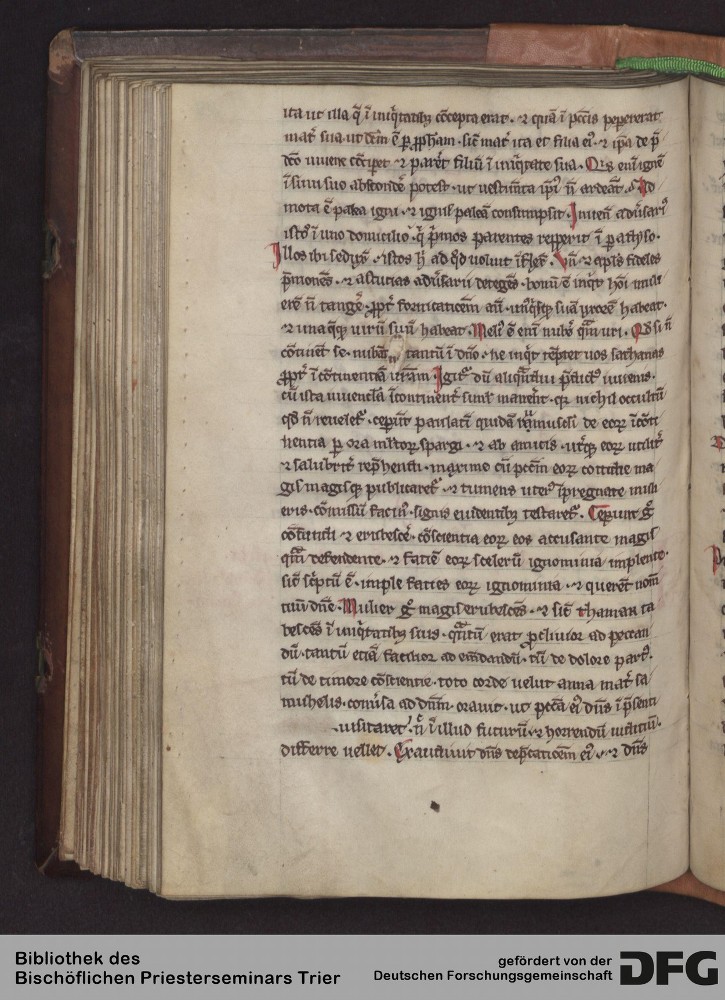 ita ut illa q̄ ī iniq̄tatibꝫ ꝯcepta erat ⁊ quā ī pccīs pepererat
mat̉ sua ut dcm̄ ē ꝑ ꝓph̄am sic̄ mat̉ ita et filia eiꝰ ⁊ ip̄a de p̄
dc̄o iuuene ꝯciꝑet ⁊ paret̉ filiū ī iniq̄tate sua Qis eni ignē
ī sinu suo abscond̉e potest ut uestim̄ta ip̄iꝰ n̄ ardeāt Ad
mota ē palea igni ⁊ ignis paleā consumpsit Inuen̄ adūsariꝰ
istos ī uno domicilio q̄ p̄mos parentes repperit ī paradyso
Illos ibi seduxit istos h̄ ad qd uoluit īflex̄ Vn̄ ⁊ apl̄s fideles
p̄monens ⁊ astucias adūsarii detegēs bonū ē inqt hoi muli
erē n̄ tang̉e ꝓpt̉ fornicatioēm aut̄ unꝰqꝫqꝫ suā uxorē habeat
⁊ una q̄qꝫ uirū suū habeat Meliꝰ ē eni nub̉e q̄m uri Qd si n̄
ꝯtinēt se nubāt tantū ī dn̄o ne inqt tēptet uos sathanas
ꝓpt̉ īꝯtinentiā ur̄am Igit̉ dū aliq̄mdiu p̄dictꝰ iuuenis
cū ista iuuencla īꝯtinent̉ simł manent̉ qꝛ nichil occultū
qd n̄ reueletᷣ ceperūt paulati quidā rumusculi de eoꝝ īꝯti
nentia ꝑ ora multoꝝ spargi ⁊ ab amicis utrꝫqꝫ eoꝝ utilit̉
⁊ salubrit̉ rep̄hendi maxime cū pccm̄ eoꝝ cottidie ma
gis magisqꝫ publicaretᷣ ⁊ tumens uterꝰ īpregnate muli
eris ꝯmissū facinꝰ signis euidentibꝫ testaretᷣ Ceperunt g̊
confundi ⁊ erubesc̉e conscientia eoꝝ eos accusante magis
q̄m defendente ⁊ faciē eoꝝ sceleꝝ ignominia implente
sic̄ scptū ē imple facies eoꝝ ignominia ⁊ querēt nom̄
tuū dn̄e Mulier g̊ magis erubescēs ⁊ sic̄ thamar ta
bescēs ī iniq̄tatibꝫ suis q̄ntū erat procliuior ad peccan
dū tantū eciā facilior ad em̄dandū tū de dolore partꝰ
tū de timore ꝯscientie toto corde uelut anna mat̉ sa
muhelis conūsa ad dn̄m orauit ut pccā eiꝰ dn̄s ī p̄senti
uisitaret n̄ ī illud futurū ⁊ horrendū iudiciū
differre uellet Exaudiuit dn̄s dep̄catioēm eiꝰ ⁊ dn̄s
Bibliothek des
Bischöflichen Priesterseminars Trier
gefördert von der
Deutschen Forschungsgemeinschaft
DFG